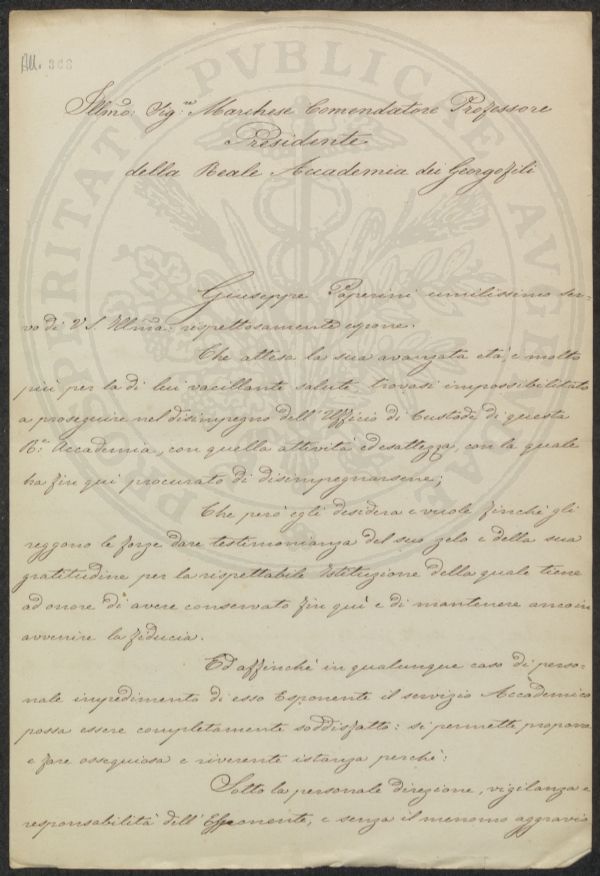 All. 368
Illmo: Sig.re Marchese Comendatore Professore
Presidente
della Reale Accademia dei Georgofili
Giuseppe Paperini umilissimo ser-
vo di V. S. Illma: rispettosamente espone.
Che attesa la sua avanzata età, e molto
più per la di lui vacillante salute trovasi impossibilitato
a proseguire nel disimpegno dell'Uffizio di Custode di questa
R.e Accademia, con quella attività ed esattezza, con la quale
ha fin quì procurato di disimpegnarsene;
Che però egli desidera e vuole finchè gli
reggono le forze dare testimonianza del suo zelo e della sua
gratitudine per la rispettabile Istituzione della quale tiene
ad onore di avere conservato fin quì e di mantenere anco in
avvenire la fiducia.
Ed affinchè in qualunque caso di perso-
nale impedimento di esso Esponente il servizio Accademico
possa essere completamente soddisfatto: si permette proporre
e fare ossequiosa e riverente istanza perchè:
Sotto la personale direzione, vigilanza e
responsabilità dell'Esponente, e senza il menomo aggravio
PROSPERITATI PVBLICAE AVGENDAE